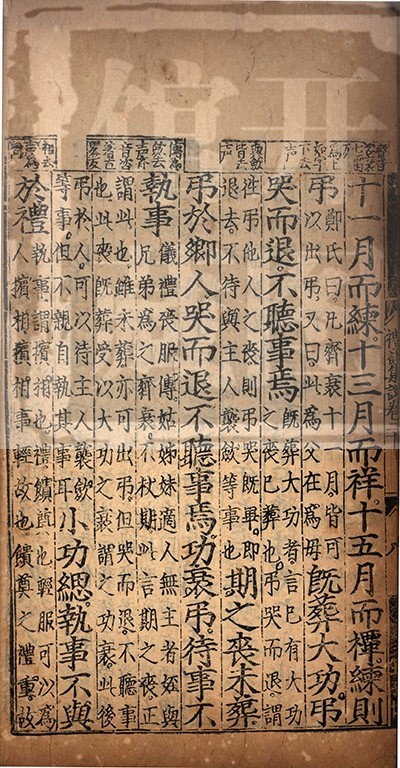 十一月而練。十三月而祥。十五月而禫。練則
弔
鄭氏曰凡齊衰十一月皆可
以出弔又曰此為父在為母
既葬大功弔
哭而退。不聽事焉
既葬大功者言已有大功
之喪已葬也弔哭而退謂
往弔他人之喪則弔哭既畢即
退去不待與主人襲斂等事也
期之喪未葬
弔於鄉人哭而退不聽事焉。功衰弔。待事不
執事
儀禮喪服傳姑姊妹適人無主者姪與
兄弟為之齊衰不杖期此言期之喪正
謂此也雖未葬亦可出弔但哭而退不聽事
也此喪既葬受以大功之衰謂之功衰此後
弔於人可以待主人襲斂
等事但不親自執其事耳
小功緦。執事不與
於禮
執事謂擯相也禮饋奠也輕服可以為
人擯相擯相事輕故也饋奠之禮重故